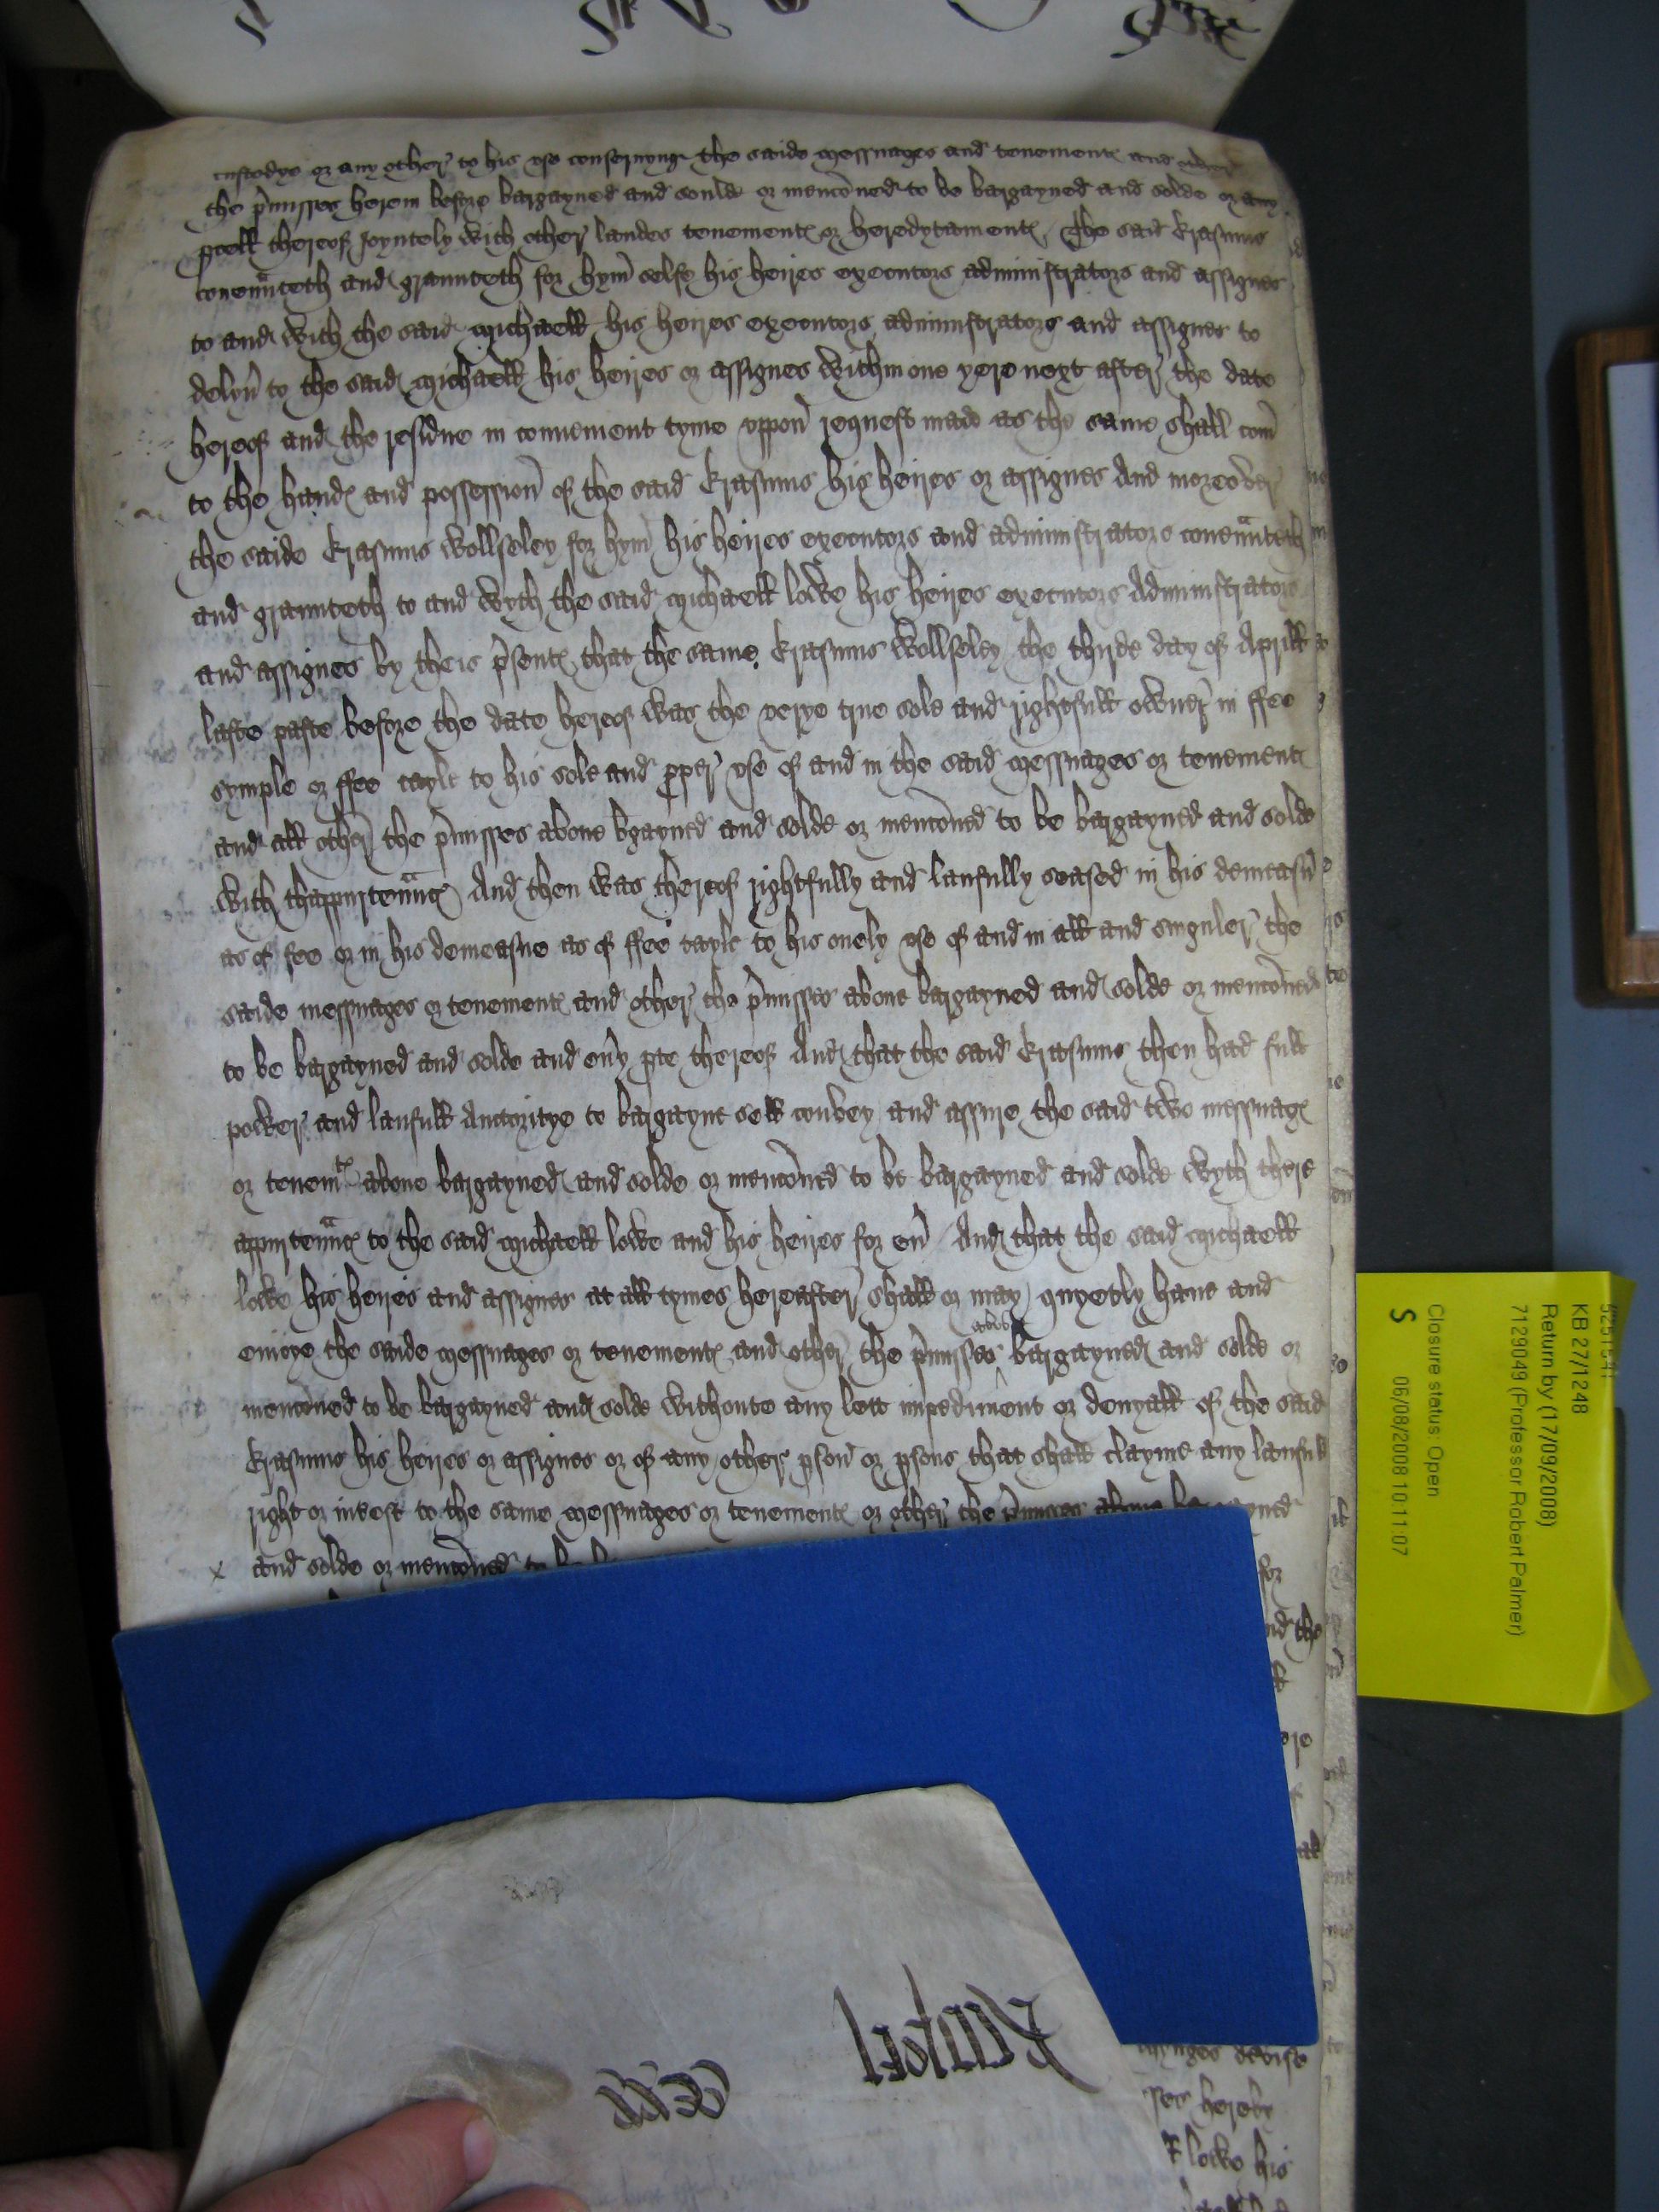 custodye or any other to his use consernyng the saide messuages and tenement and other
the p'misses herein before bargayned and soulde or menconed to be bargayned and solde or any
p'cell thereof Joyntely with other landes tenement or heredytament The said Erasmus
covenuteth and graunteth for hym selfe his heires executors administrators and assignes
to and with the said Michaell his heires executors administrators and assignes to
delyu' to the said Michaell his heires or assignes within one yere next after the date
hereof and the residue in convenient tyme uppon request made as the same shall com
to the hand and possession of the said Erasmus his heires or assignes And moreover
the saide Erasmus Wollseley for hym his heires executors and administrators covenuteth
and graunteth to and wyth the said Michaell lowe his heires executors Administrators
and assignes by theis p'sent that the same Erasmus Wollseley the thyrde day of Aprill
laste paste before the date hereof was the verye true sole and rightfull owner in ffee
symple or ffee tayle to his sole and p'per use of and in the said messuages or tenement
and all other the p'misses above bgayned and solde or menconed to be bargayned and solde
with thappurtenuc And then was thereof rightfully and laufully seased in his demeasn
as of fee or in his demeasne as of ffee tayle to his onely use of and in all and singuler the
saide messuages or tenement and other the p'misses above bargayned and solde or menconed
to be bargayned and solde and eu'y p'te thereof And that the said Erasmus then had full
power and laufull Auctoritye to bargayne sell convey and assure the said two messuag
or tenemt above bargayned and solde or menconed to be bargayned and solde wyth there
appurtenuc to the said Michaell lowe and his heires for eu' And that the said Michaell
lowe his heires and assignes at all tymes hereafter shall or may quyetly have and
enioye the saide messuages or tenement and other the p'misses above bargayned and solde or
menconed to be bargayned and solde withoute any lett impediment or denyall of the said
Erasmus his heires or assignes or of any other p'son or p'sons that shall clayme any laufull
right or int'est to the same messuages or tenement or other the p'misses above
x and solde or menconed to be
for
the
thinges devise
hereby
lowe his
Rotulet
525154
KB 27/1248
Return by (17/09/2008)
7129049 (Professor Robert Palmer)
Closure status: Open
S 06/08/2008 10:11:07